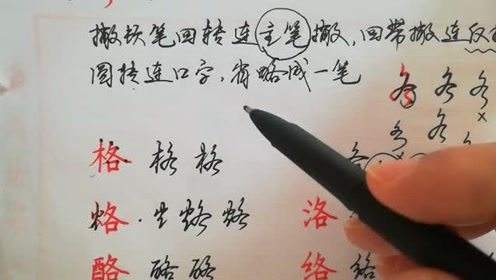 撇按笔回转连主笔撇,回带撇连反
圆转连口字,省略成一笔
各 各 各
各 各 ×
格 格 格
烙 · 生 烙 烙 洛
酪 酪 酪 络 络